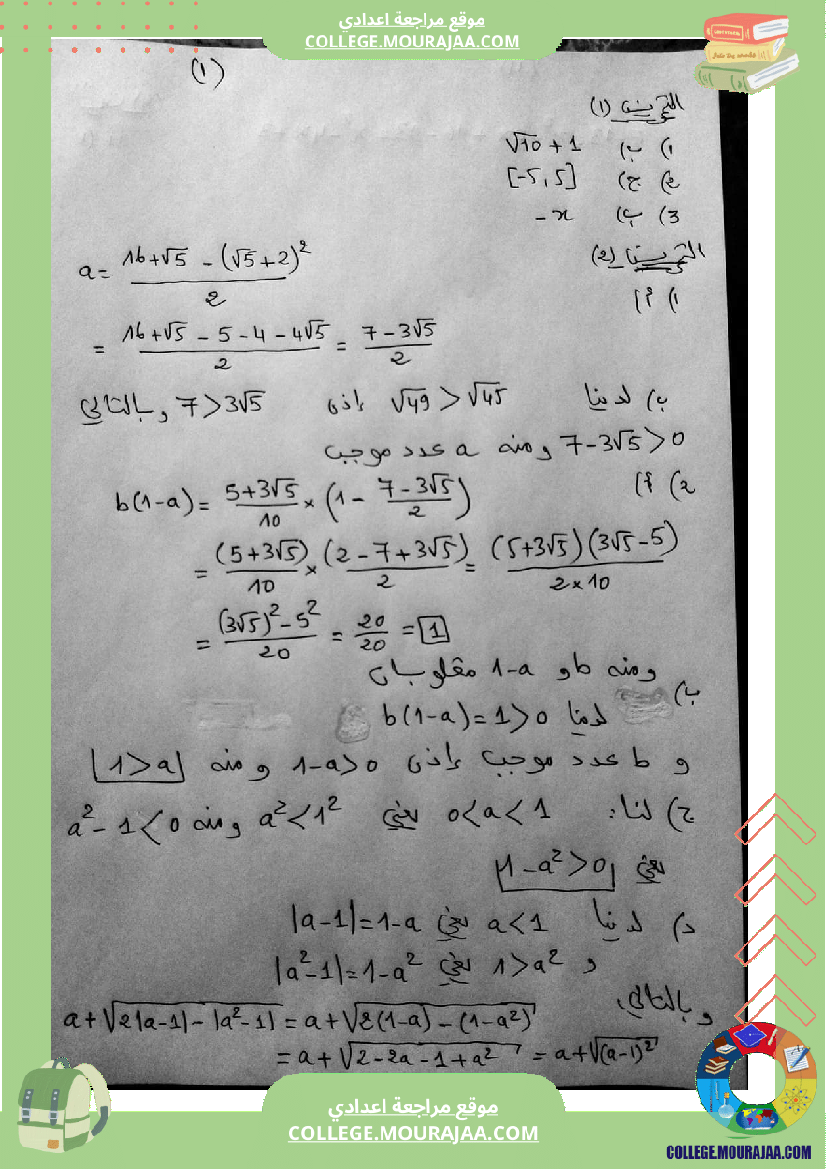 موقع مراجعة اعدادي
COLLEGE.MOURAJAA.COM
(١)
التمرين (1)
١) ب) √10 + 1
2) ج) [-5, 5]
3) ب) -x
التمرين (2)
١) أ)
a = (16+√5 - (√5+2)²)/2
= (16+√5 - 5 - 4 - 4√5)/2 = (7 - 3√5)/2
ب) لدينا √49 > √45 إذن 7 > 3√5 وبالتالي
7 - 3√5 > 0 ومنه a عدد موجب
2) أ)
b(1-a) = (5+3√5)/10 × (1 - (7-3√5)/2)
= (5+3√5)/10 × (2-7+3√5)/2 = (5+3√5)(3√5-5)/(2×10)
= ((3√5)² - 5²)/20 = 20/20 = 1
ومنه b و 1-a مقلوبان
ب) لدينا b(1-a) = 1 > 0
و b عدد موجب إذن 1-a > 0 ومنه 1 > a
ج) لنا: 0 < a < 1 يعني a² < 1² ومنه a² - 1 < 0
يعني 1 - a² > 0
د) لدينا a < 1 يعني |a-1| = 1-a
و 1 > a² يعني |a²-1| = 1-a²
وبالتالي:
a + √(2|a-1| - |a²-1|) = a + √(2(1-a) - (1-a²))
= a + √(2-2a-1+a²) = a + √((a-1)²)
موقع مراجعة اعدادي
COLLEGE.MOURAJAA.COM
COLLEGE.MOURAJAA.COM